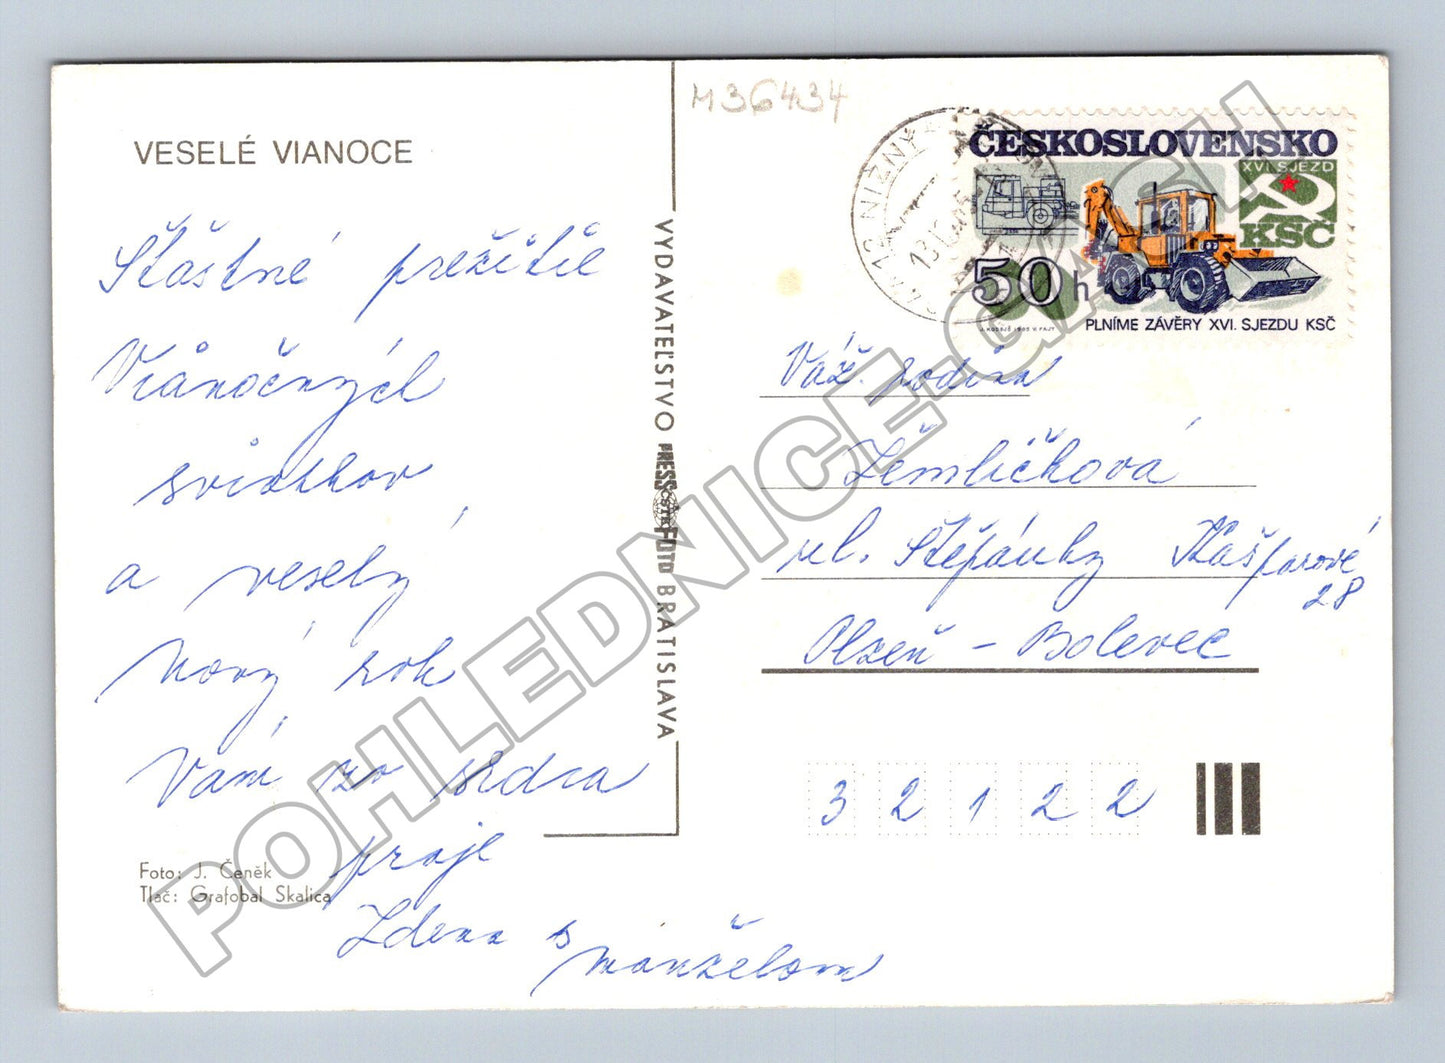 VESELÉ VIANOCE
Šťastné prežitie
Vianočných
sviatkov
a veselý
Nový rok
Vám zo srdca
praje
Zdena s manželom
Foto: J. Čeněk
Tlač: Grafobal Skalica
VYDAVATEĽSTVO PRESSFOTO BRATISLAVA
ČSTK
M36434
NIŽNÝ
ČESKOSLOVENSKO
XVI. SJEZD
KSČ
50 h
PLNÍME ZÁVĚRY XVI. SJEZDU KSČ
Váž. rodina
Žemličková
ul. Štěpánky Kašparové
28
Plzeň - Bolevec
32122
POHLEDNICE-CASH